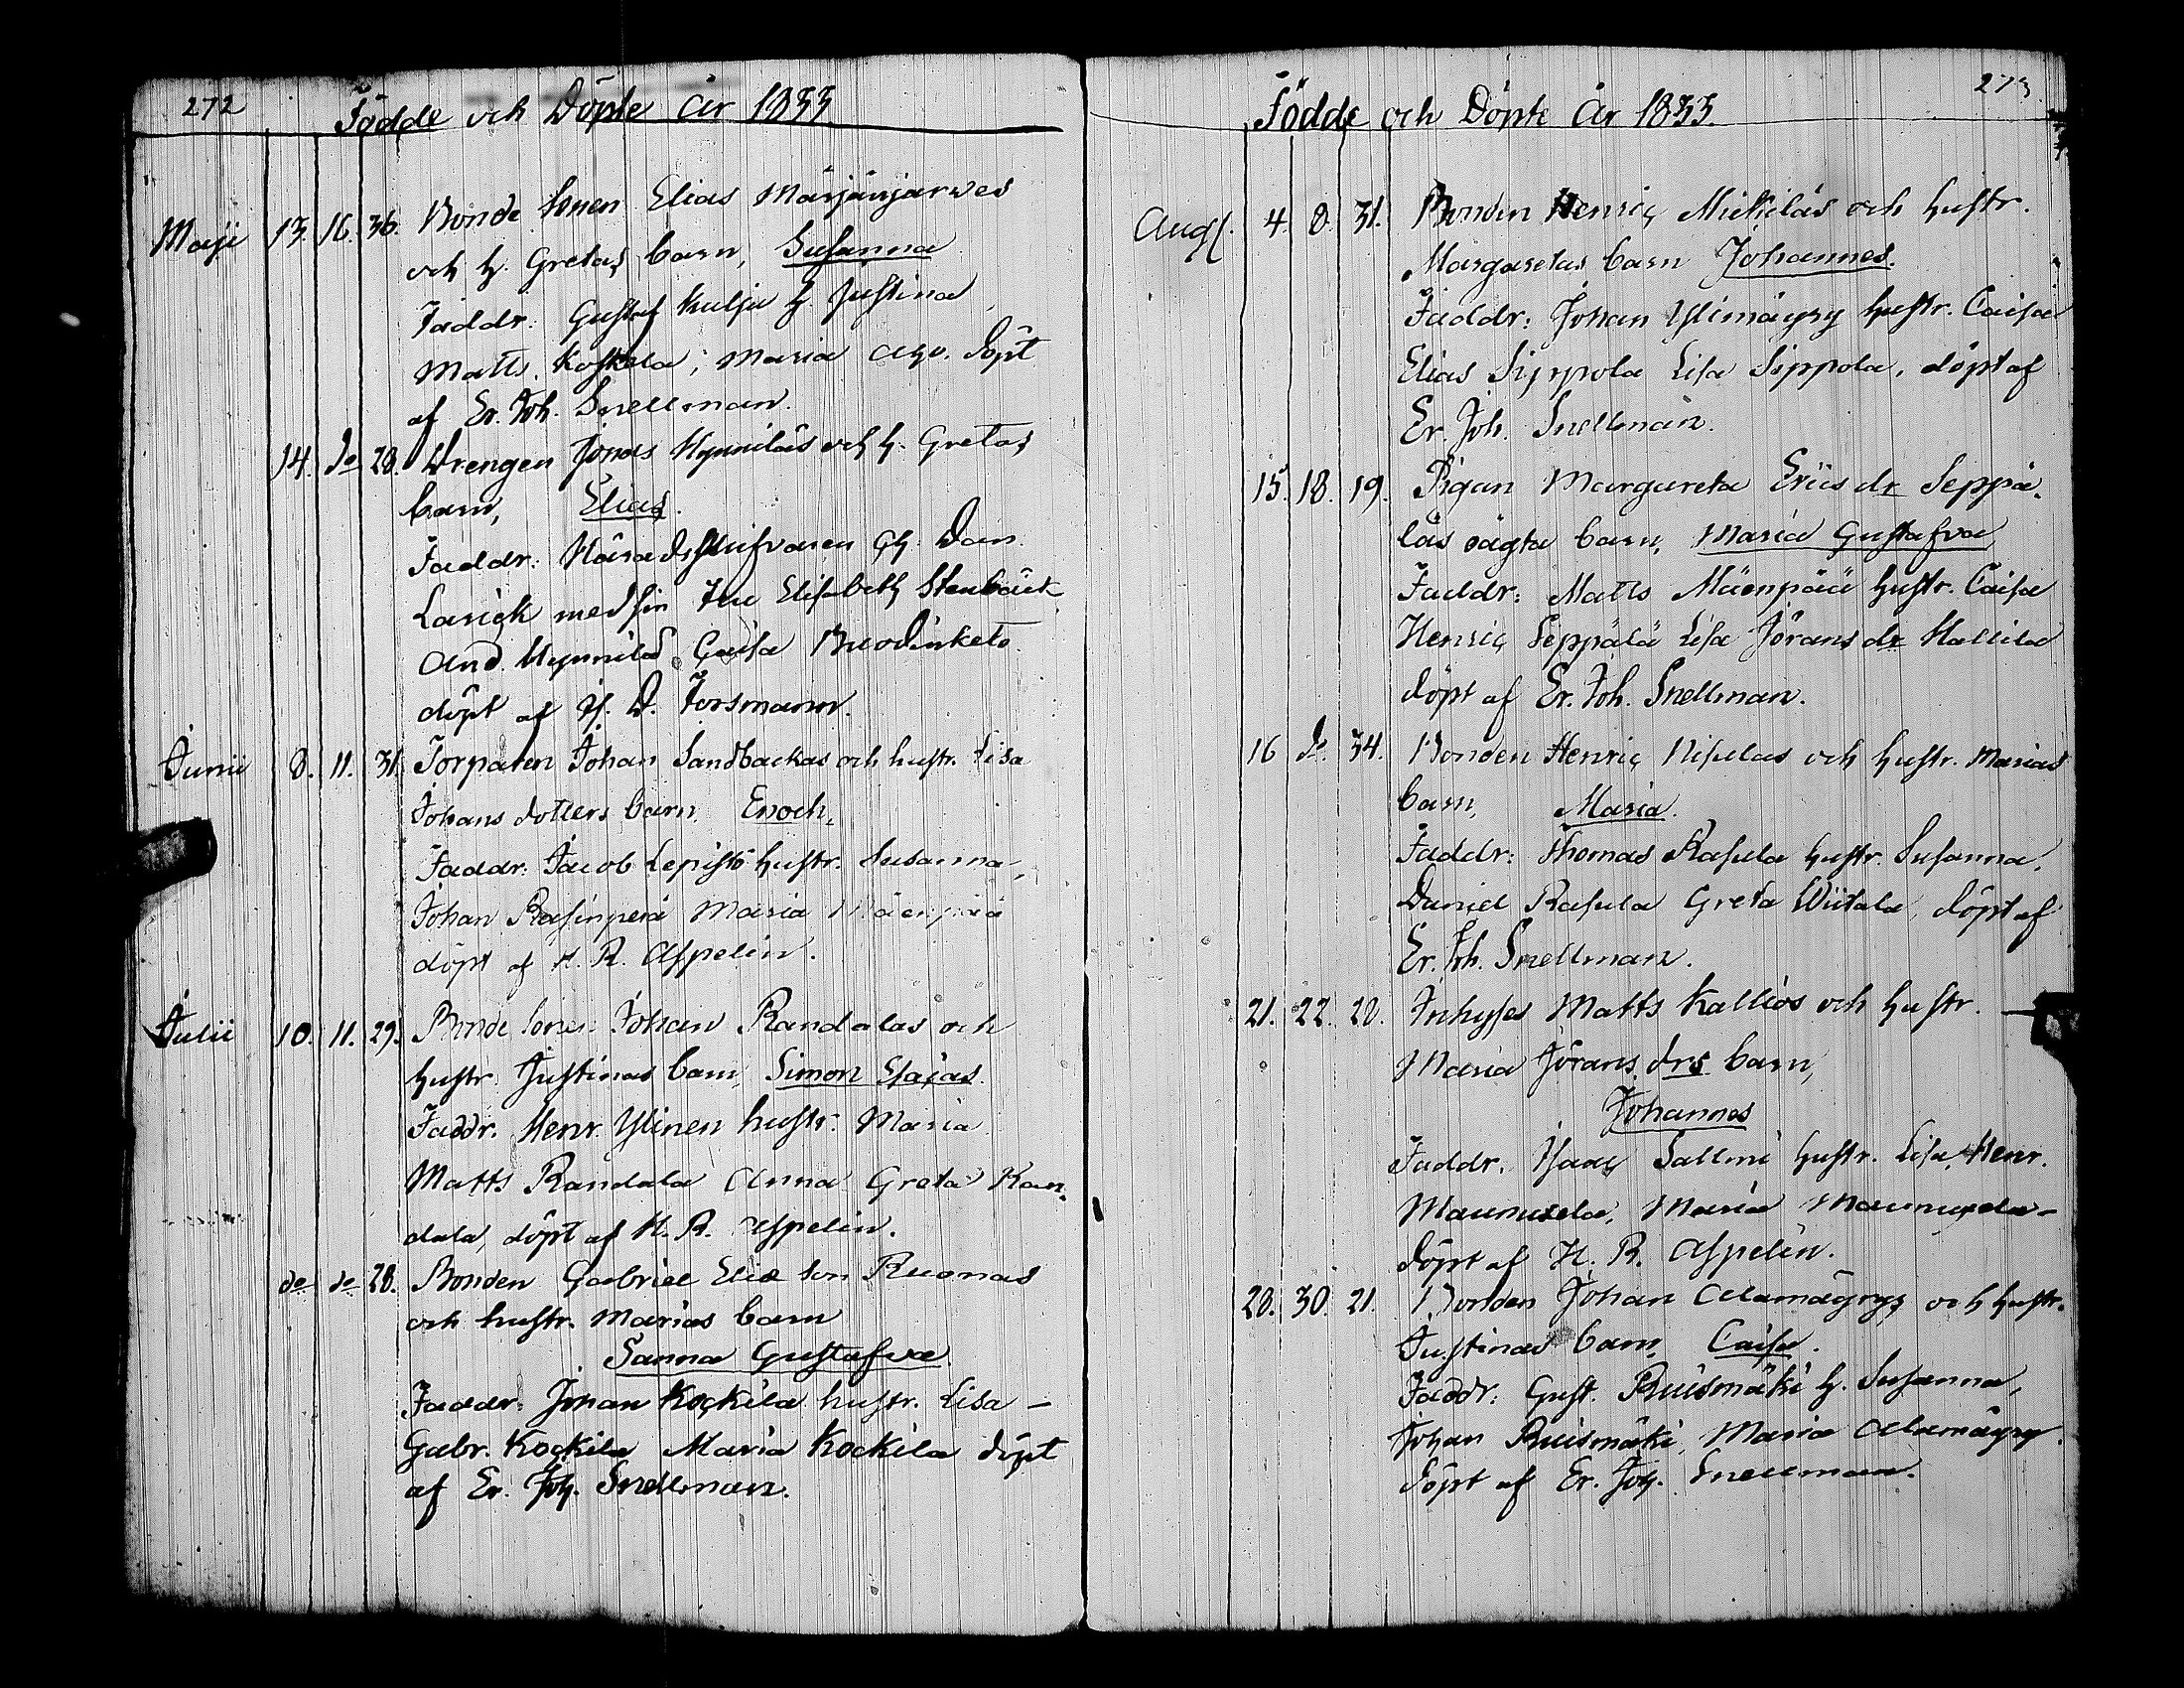 272
Födde och Döpte År 1833.
Maji 13. 16. 36. Bonde Sonen Elias Märjänjärwes
och h. Gretas barn, Susanna
Faddr: Gustaf Kulju h. Justina
Matts Koskela, Maria döpt
af Er. Joh. Snellman.
14. do 28. Drengen Jonas Hynniläs och h. Gretas
barn, Elias.
Faddr: Häradsskrifvaren Dan.
Larick med sin Fru Elisabeth Stenbäck
And. Hynnilä, Caisa
döpt af J. D. Forsmann.
Junii 8. 11. 31. Torparen Johan Sandbackas och hustr. Lisa
Johans dotters barn, Enoch,
Faddr: Jacob Lepistö hustr. Susanna,
Johan Rasinperä Maria Mäenpää
döpt af H. R. Aspelin.
Julii 10. 11. 29. Bonde Sonen Johan Randalas och
hustr. Justinas barn, Simon Esaias.
Faddr. Henr. Ylinen hustr. Maria
Matts Randala Anna Greta Ran-
dala, döpt af H. R. Aspelin.
do do 28. Bonden Gabriel Eliæ son Ruonas
och hustr. Marias barn
Sanna Gustafva
Faddr: Johan Kockila hustr. Lisa –
Gabr. Kockila Maria Kockila döpt
af Er. Joh. Snellman.
273
Födde och Döpte År 1833.
Aug. 4. 8. 31. Bonden Henric Mickiläs och hustr.
Margaretas barn Johannes.
Faddr: Johan Ylimäyry hustr. Caisa
Elias Sippola Lisa Sippola, döpt af
Er. Joh. Snellman.
15. 18. 19. Pigan Margareta Eriis dr Seppä-
läs oägta barn, Maria Gustafva
Faddr: Matts Mäenpää hustr. Caisa
Henric Seppälä Lisa Jörans dr Hallila
döpt af Er. Joh. Snellman.
16 do. 34. Bonden Henric Nisulas och hustr. Marias
barn, Maria.
Faddr: Thomas Rasula hustr. Susanna,
Daniel Rasula Greta Wiitala, döpt af
Er. Joh. Snellman.
21. 22. 28. Inhyses Matts Kallios och hustr.
Maria Jörans drs barn,
Johannes
Faddr. Isaac Salmi hustr. Lisa, Henr.
Maunuxela, Maria Maunuxela –
döpt af H. R. Aspelin.
28. 30. 21. Bonden Johan Alamäyrys och hustr.
Justinas barn, Caisa.
Faddr: Gust. Ruismäki h. Susanna,
Johan Ruismäki, Maria Alamäyry.
döpt af Er. Joh. Snellman.